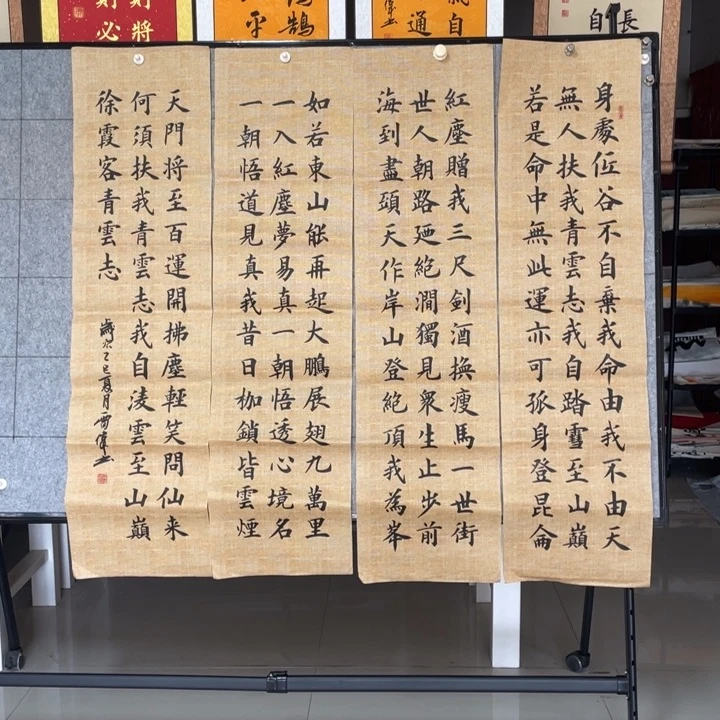 身處低谷不自棄我命由我不由天
無人扶我青雲志我自踏雪至山巔
若是命中無此運亦可孤身登昆侖
紅塵贈我三尺劍酒換瘦馬一世街
世人朝路廸絕澗獨見衆生止步前
海到盡頭天作岸山登絕頂我為峯
如若東山能再起大鵬展翅九萬里
一入紅塵夢易真一朝悟透心境名
一朝悟道見真我昔日枷鎖皆雲煙
天門将至百運開拂塵輕笑問仙来
何須扶我青雲志我自淩雲至山巔
徐霞客青雲志
歲次乙巳夏月
長
自
自
通
鵠
平
將
必